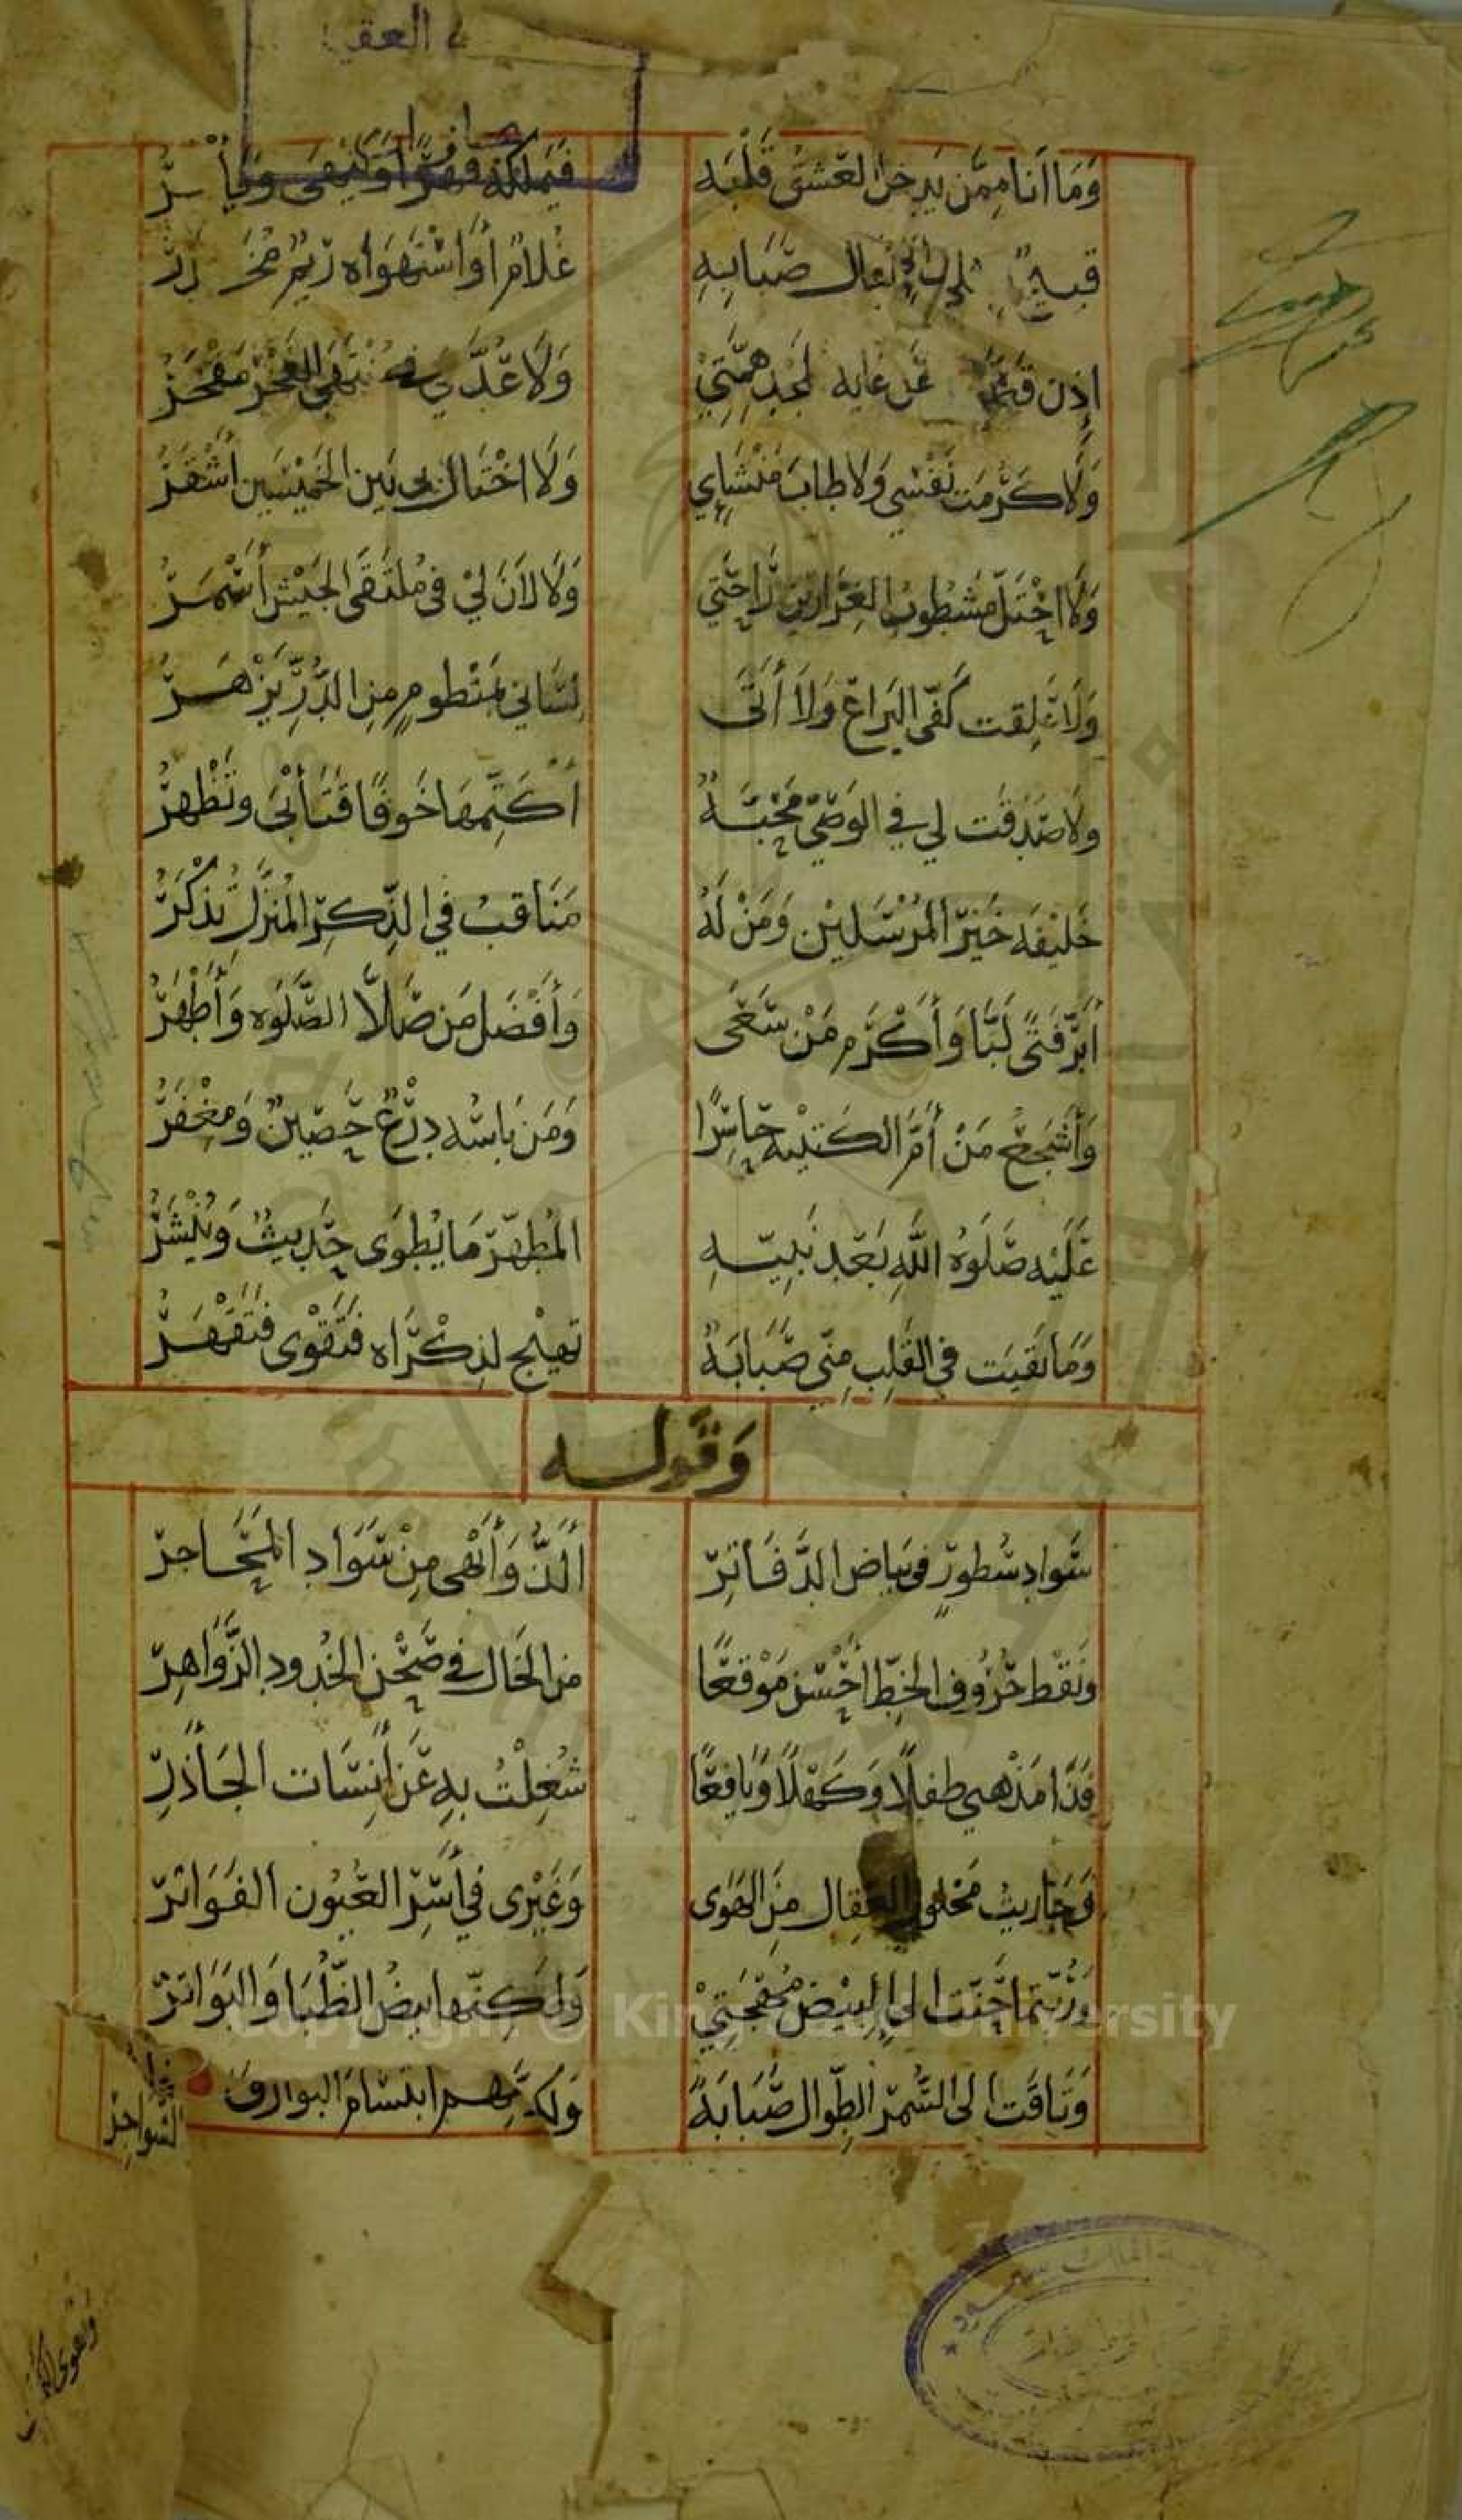 العقيد
وَمَا أَنَا مِمَّن يَدخل العشق قَلْبَه فَيَملكه قهرًا وَينهى وَيأسرُ
إلى صَبَابه غُلامٌ أو اسْتهوَاه رِيمٌ مُخَدَّرُ
إذن عن غايه المجد هِمّتِيْ وَلَا عُدَّ لي في مُنتهى الفخر مَفْخَرُ
وَلَا كَرُمَت نَفْسِي وَلا طابَ مَنْشَاي وَلَا اخْتَال بي بَين الخَمِيْسَين أَشْقَرُ
وَلَا احْتَلَّ مَشطوب الغرارين رَاحَتي وَلَا لَانَ لِيْ في مُلتَقَى الجَيْش أَسْمَرُ
وَلَا عَلِقت كَفّى اليَرَاعَ وَلَا أَتَى لِسَاني بمَنْظومٍ مِنَ الدُّرِّ يَزْهَرُ
ولا صَدَقت لي في الوَصِيّ مَحَبَّةٌ أُكَتِّمهَا خَوفًا فتَأبَى وتَظْهرُ
خَلِيْفه خَيْرِ المُرْسَلِيْن وَمَنْ لَهُ مَنَاقبٌ في الذِّكرِ المُنزَّل تُذْكَرُ
أَبَرُّ فَتًى لَبَّا وَأَكْرَم مَنْ سَعَى وَأَفْضَل مَن صَلّا الصَّلَوه وَأَطْهَرُ
وَأَشْجَعُ مَنْ أَمَّ الكتيْبه حَاسِرًا وَمَن بَاسُه دِرْعٌ حَصِينٌ وَمِغْفَرُ
عَلَيْه صَلَوهُ اللهِ بَعْد نَبِيّهِ المُطهّر مَا يُطوَى حَديثٌ وَيُنْشَرُ
وَمَا بَقيَت في القَلب مِنّي صَبَابَةٌ تهيْج لذِكْرَاه فتَقْوى فَتَقْهَرُ
وَقوله
سَوادِ سُطورٍ في بَياض الدَّفَاتِرِ أَلَذُّ وَأَبْهى مِنْ سَوَادِ المَحَاجرِ
ونَقْط حُرُوف الخطِّ أحْسَن مَوْقعًا من الخَال في صَحْن الخُدودِ الزَّوَاهِرِ
فَذَا مَذْهبي طفلًا وَكَهْلًا وَيَافِعًا شُغِلْتُ بهِ عَن آنِسَات الجَآذرِ
مَحْلول العِقال مِنَ الهَوَى وَغَيْرى في أَسْرِ العُيُون الفَوَاتِرِ
وَرُبّتما حَنّت الى البِيْض مُهْجَتِيْ وَلكنّها بيضُ الظُّبَا وَالبَوَاتِرِ
وَتَاقَت الى السُّمْرِ الطِّوال صَبَابَةً وَلكنَّهم ابتسَام البوارق